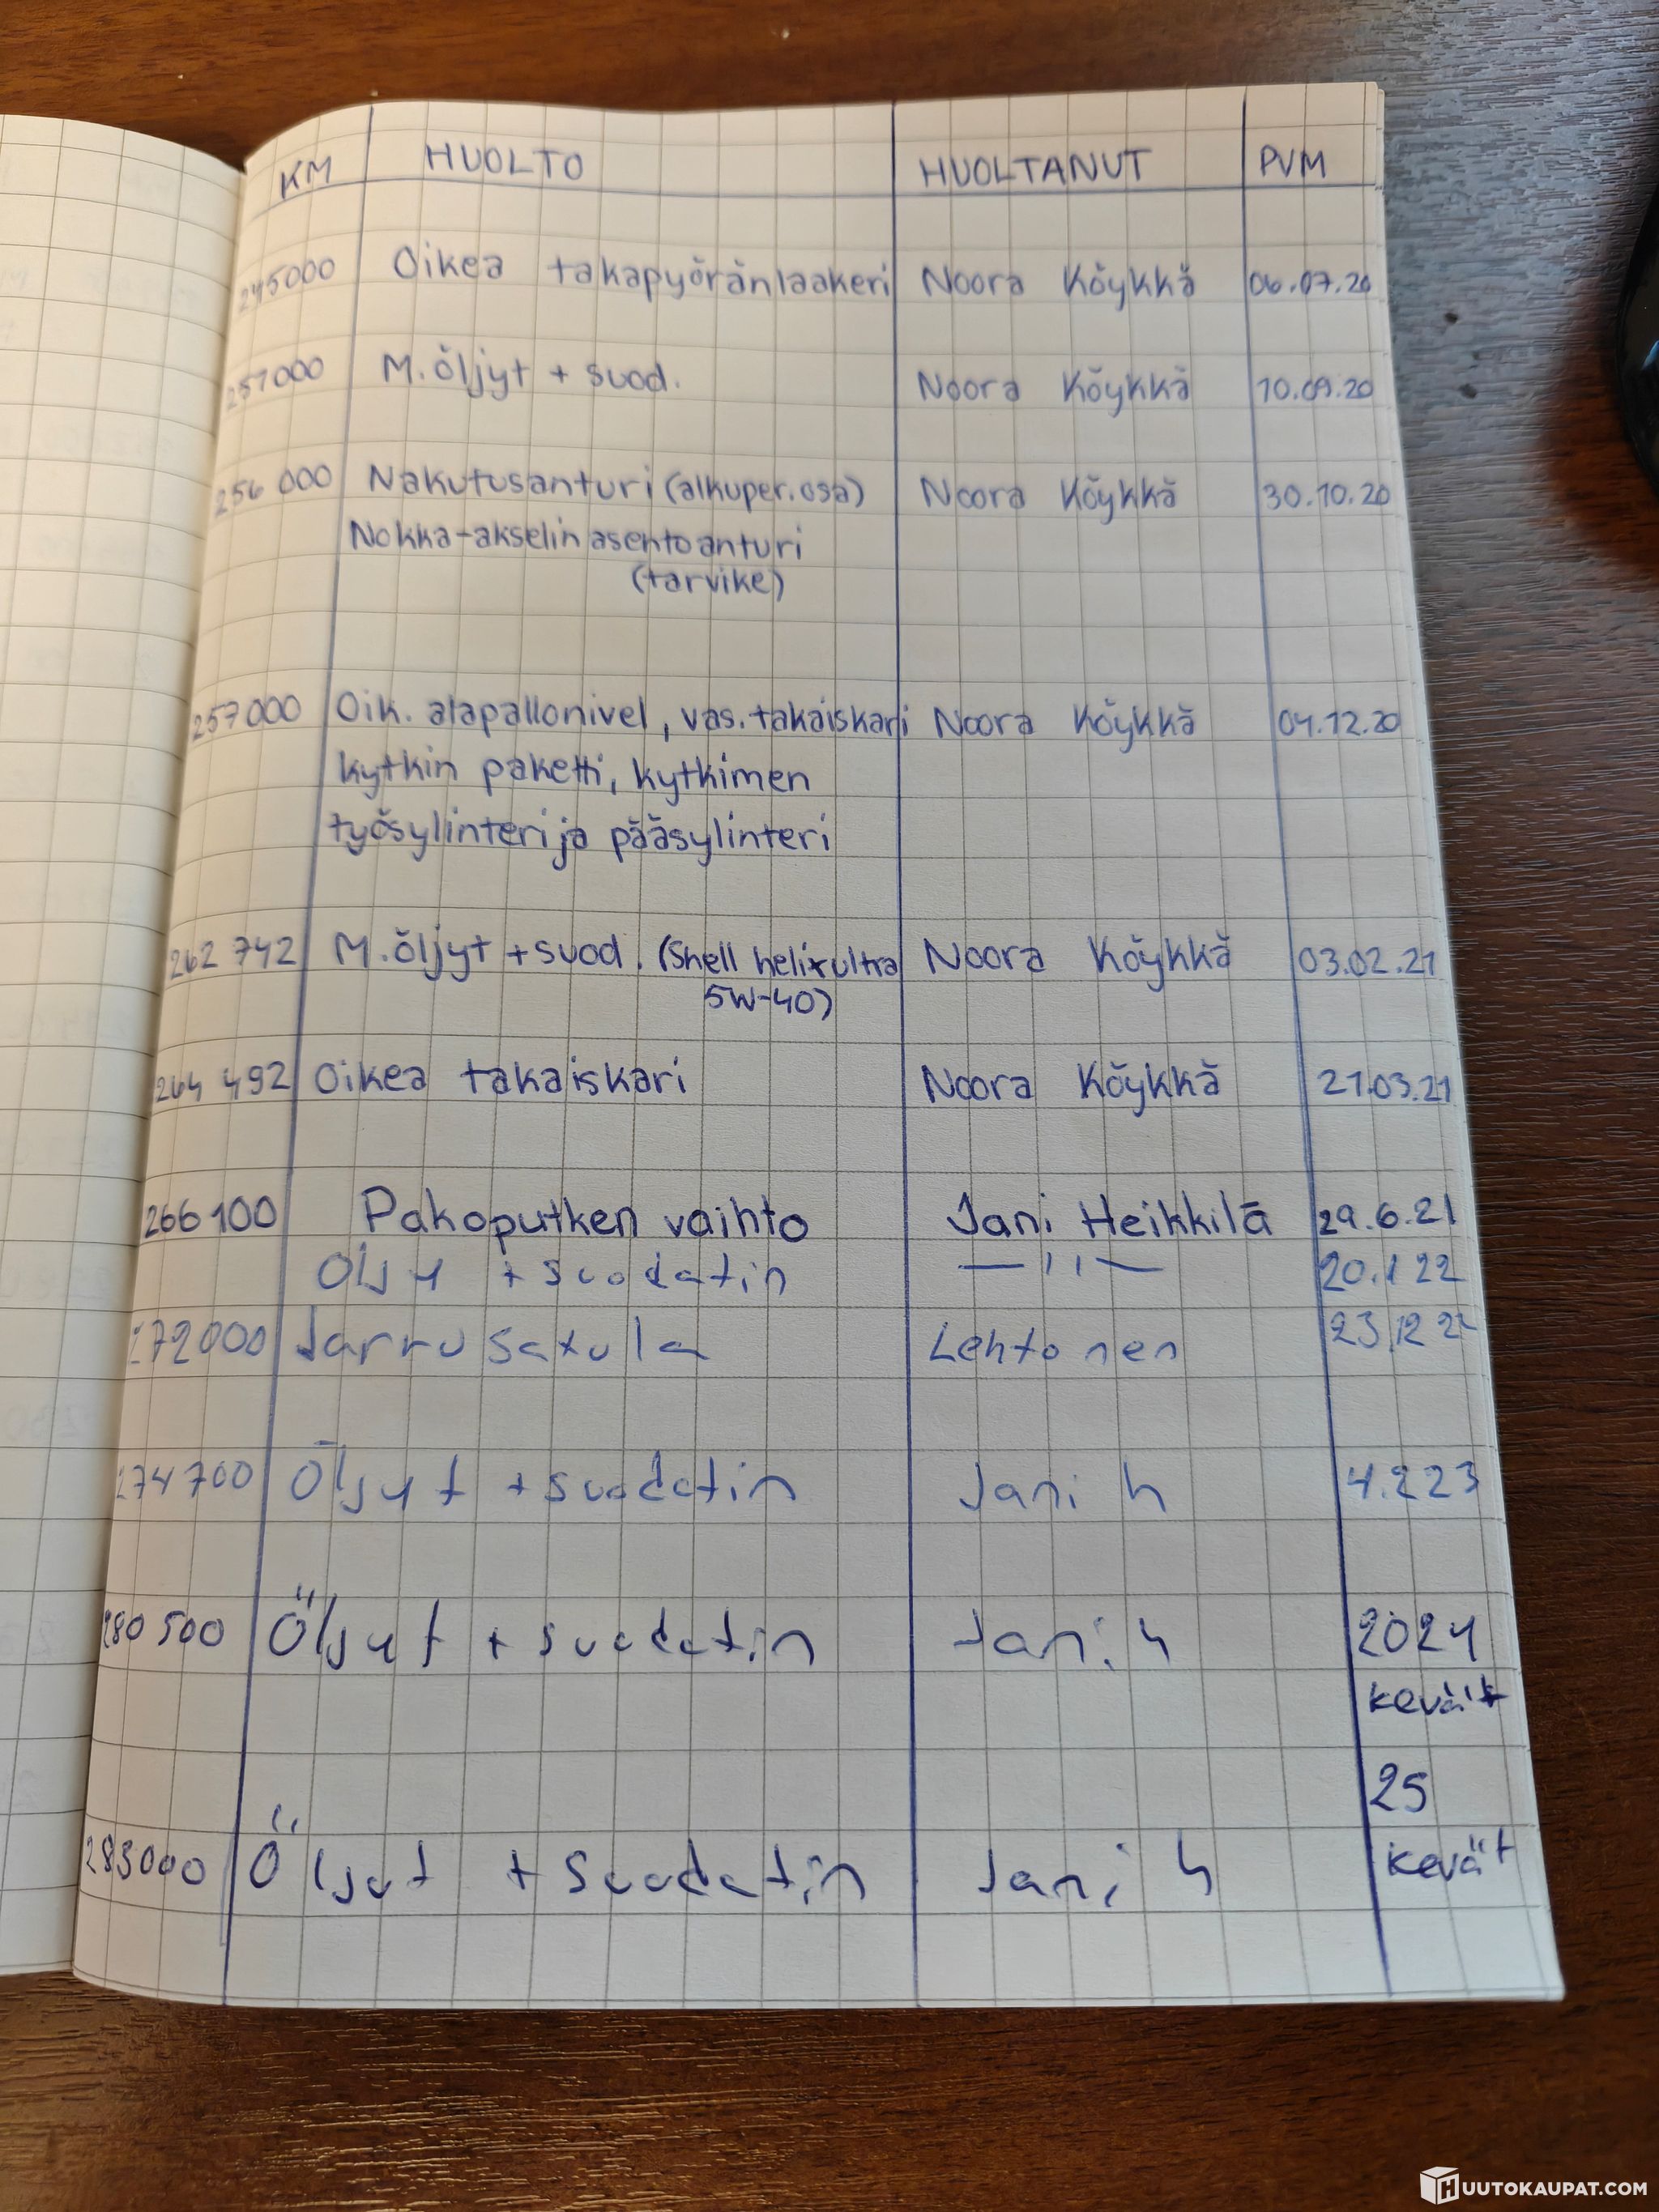 KM HUOLTO HUOLTANUT PVM
245000 Oikea takapyöränlaakeri Noora Köykkä 06.07.20
251000 M.öljyt + suod. Noora Köykkä 10.09.20
256 000 Nakutusanturi (alkuper.osa) Noora Köykkä 30.10.20
Nokka-akselin asentoanturi
(tarvike)
257000 Oik. alapallonivel, vas. takaiskari Noora Köykkä 04.12.20
kytkin paketti, kytkimen
työsylinteri ja pääsylinteri
262 742 M.öljyt + suod. (Shell helix ultra Noora Köykkä 03.02.21
5W-40)
264 492 Oikea takaiskari Noora Köykkä 21.03.21
266100 Pakoputken vaihto Jani Heikkilä 29.6.21
Öljy + suodatin —''— 20.1 22
272000 Jarru satula Lehtonen 23.12 22
274700 Öljyt + suodatin Jani h 4.2 23
280 500 Öljyt + suodatin Jani h 2024
kevät
25
283000 Öljyt + suodatin Jani h kevät
HUUTOKAUPAT.COM